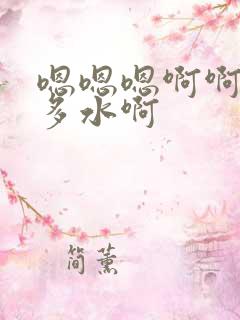 嗯嗯嗯啊啊
多水啊
简薰